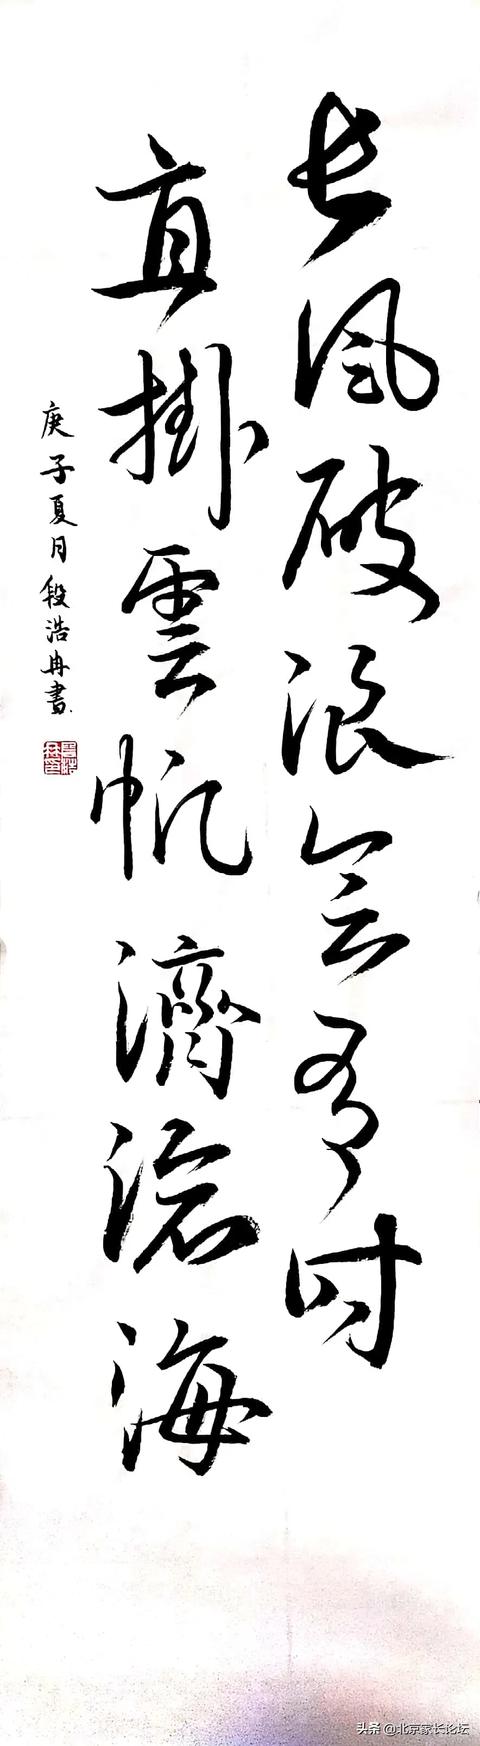 长风破浪会有时
直掛雲帆濟滄海
庚子夏月段浩冉書
头条@北京家长论坛